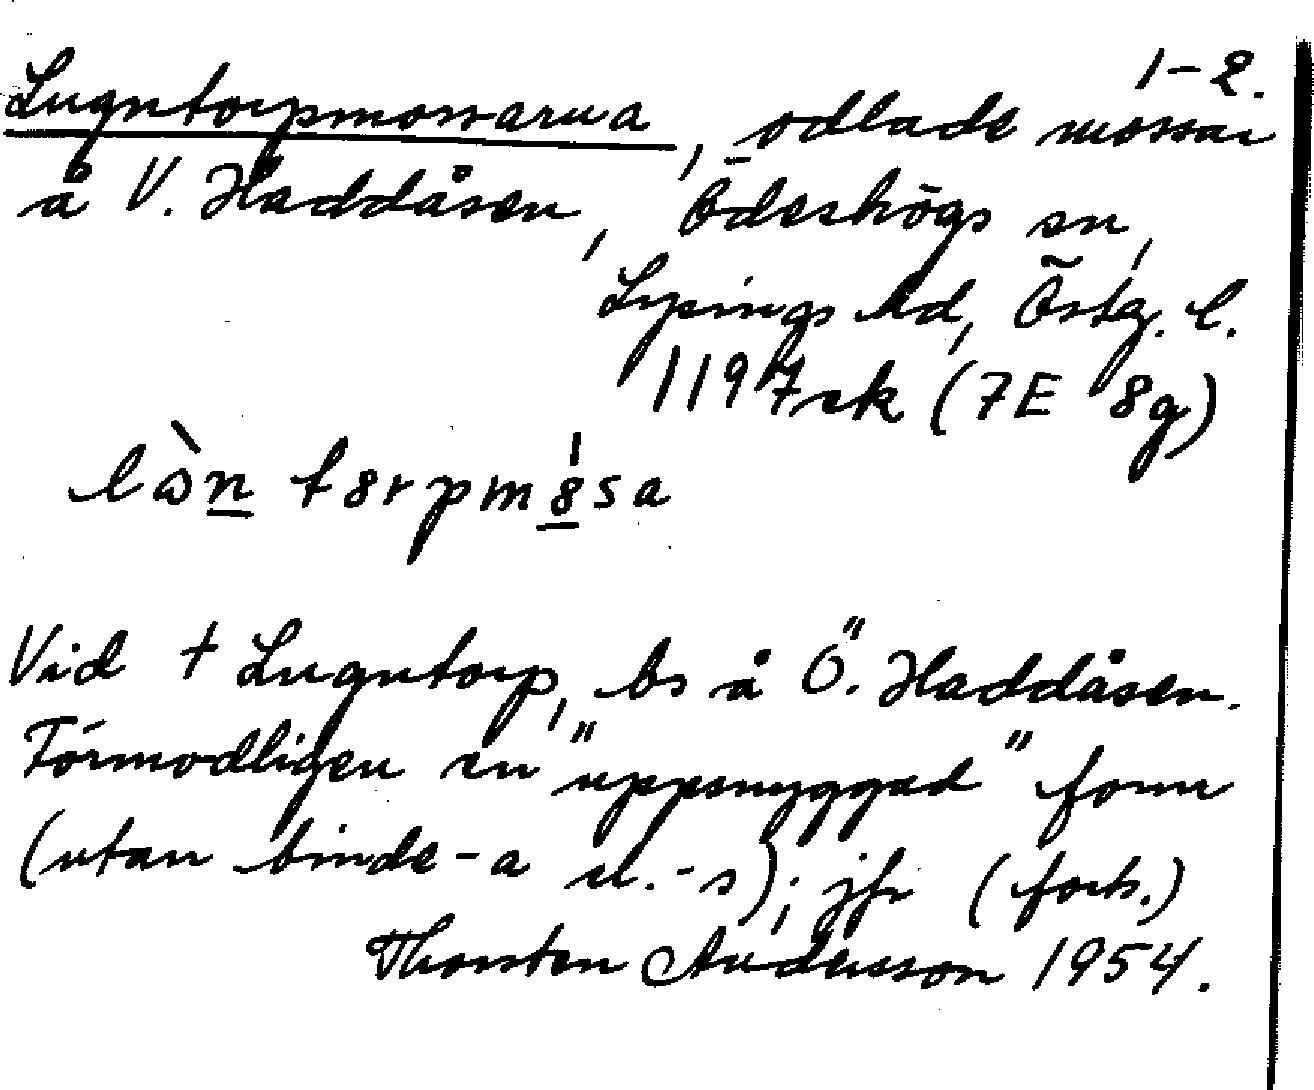 1-2.
Lugntorpmossarna, odlade mossar
å V. Haddåsen, Ödeshögs sn,
Lysings hd, Östg. l.
1197 sk (7E 8g)
lὼn tȣrpmȣ́sa
Vid † Lugntorp, bs å Ö. Haddåsen.
Förmodligen en "uppsnyggad" form
(utan binde-a el. -s); jfr (forts.)
Thorsten Andersson 1954.